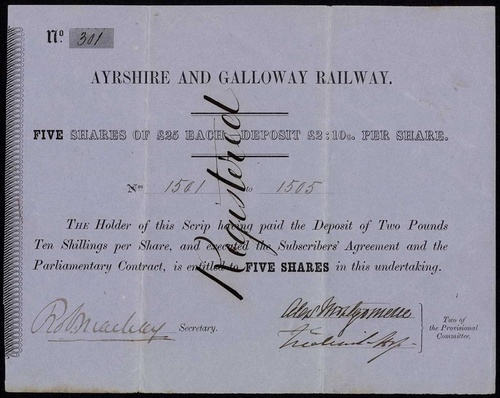 Nº 301
AYRSHIRE AND GALLOWAY RAILWAY.
FIVE SHARES OF £25 EACH DEPOSIT £2:10s. PER SHARE.
Nos 1501 to 1505
Registered
THE Holder of this Scrip having paid the Deposit of Two Pounds
Ten Shillings per Share, and executed the Subscribers' Agreement and the
Parliamentary Contract, is entitled to FIVE SHARES in this undertaking.
Secretary.
Alexr Montgomerie
Two of
the Provisional
Committee.